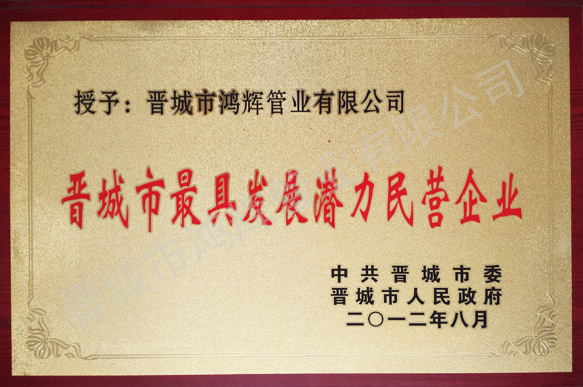 授予：晋城市鸿辉管业有限公司
晋城市最具发展潜力民营企业
中共晋城市委
晋城市人民政府
二〇一二年八月
晋城市鸿辉管业有限公司